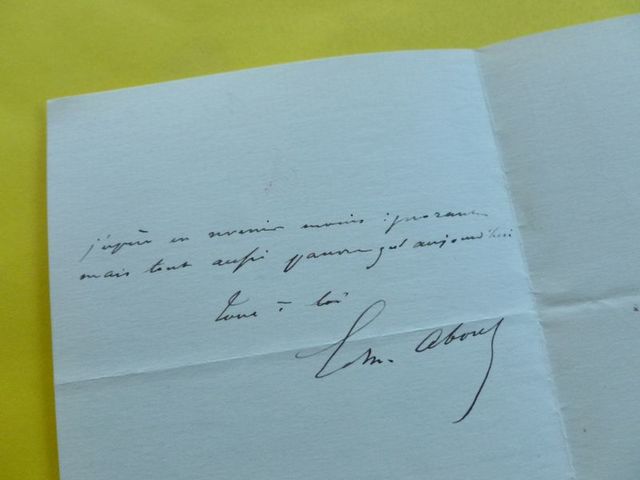 j'espère en revenir moins ignorant
mais tout aussi pauvre qu'aujourd'hui
Tout à toi
Edm. About